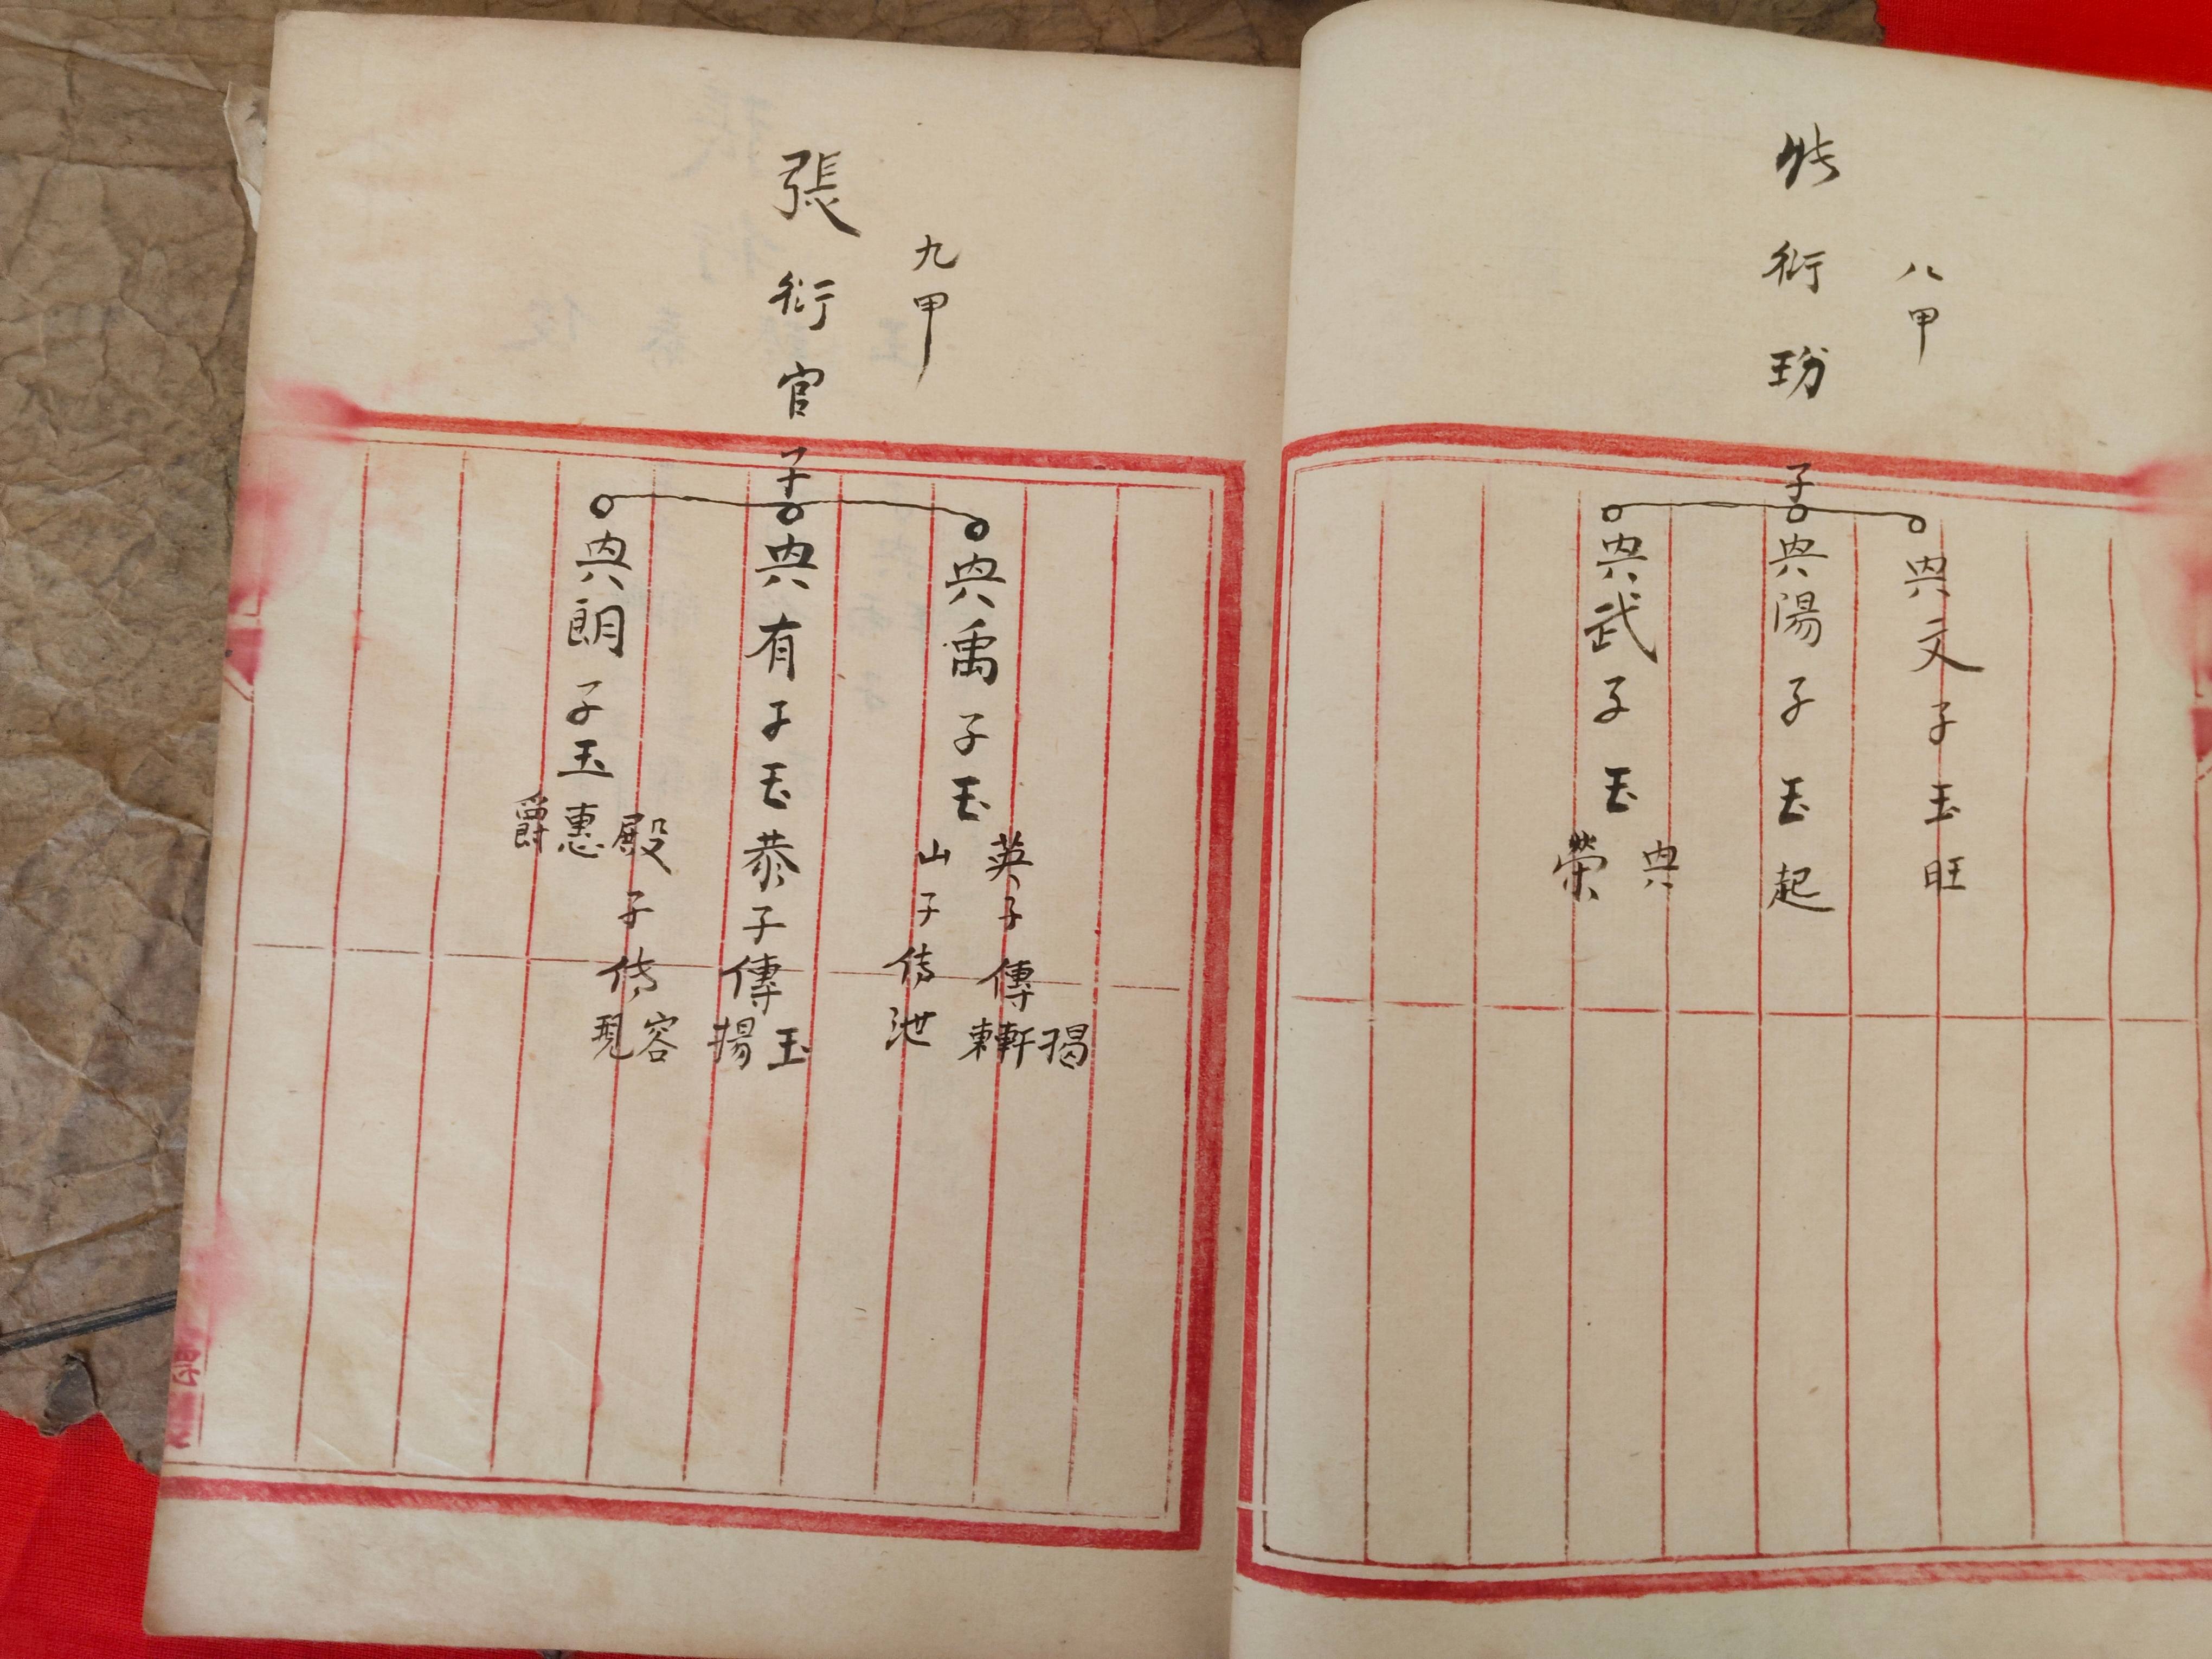 八甲
張衍玢
子
典文子玉旺
典陽子玉起
典武子玉
典
榮
九甲
張衍官
子
典禹子玉
英子傳
山子傳
泄
典有子玉恭子傳
玉
揚
典朗子玉
殿子傳
惠
爵
容
現